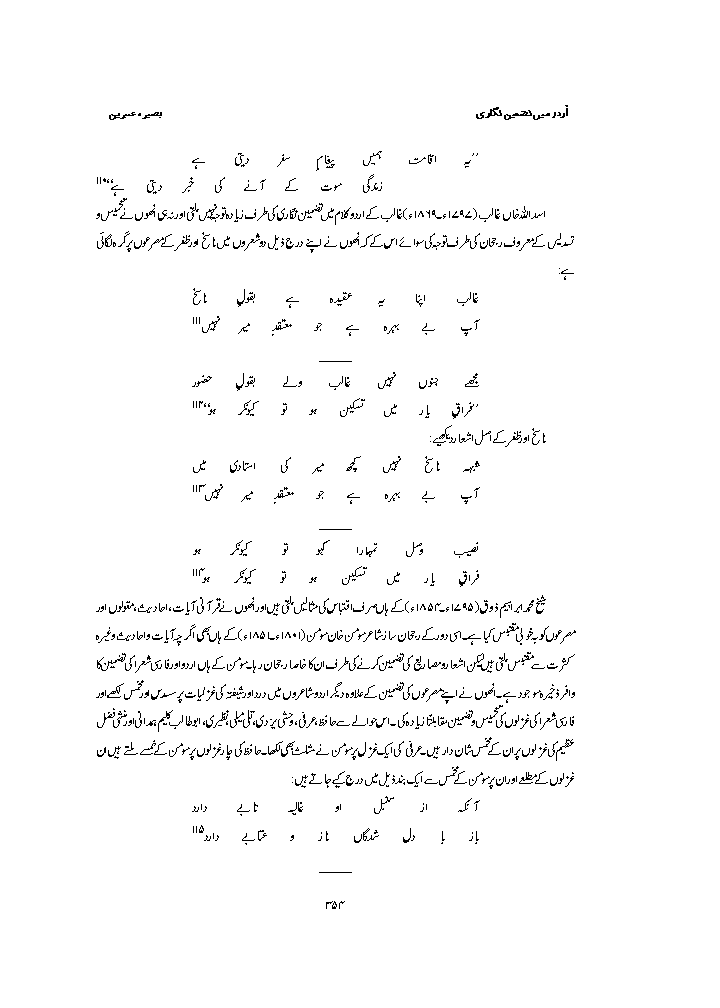 اُردو میں تضمین نگاری
بصیرہ عنبرین
’’یہ اقامت ہمیں پیغامِ سفر دیتی ہے
زندگی موت کے آنے کی خبر دیتی ہے‘‘۱۱۰
اسد اللہ خاں غالب (۱۷۹۷ء۔۱۸۶۹ء) غالب کے اردو کلام میں تضمین نگاری کی طرف زیادہ توجہ نہیں ملتی اور نہ ہی انھوں نے تخمیس و
تسدیس کے معروف رجحان کی طرف توجہ کی سوائے اس کے کہ انھوں نے اپنے درج ذیل دو شعروں میں ناسخ اور ظفر کے مصرعوں پر گرہ لگائی
ہے:
غالب اپنا یہ عقیدہ ہے بقولِ ناسخ
آپ بے بہرہ ہے جو معتقدِ میر نہیں۱۱۱
مجھے جنوں نہیں غالب ولے بقولِ حضور
’’فراقِ یار میں تسکین ہو تو کیونکر ہو‘‘۱۱۲
ناسخ اور ظفر کے اصل اشعار دیکھیے:
شبہہ ناسخ نہیں کچھ میر کی استادی میں
آپ بے بہرہ ہے جو معتقدِ میر نہیں۱۱۳
نصیب وصل تمھارا کبو تو کیونکر ہو
فراقِ یار میں تسکین ہو تو کیونکر ہو۱۱۴
شیخ محمد ابراہیم ذوق (۱۷۹۵ء۔۱۸۵۴ء) کے ہاں صرف اقتباس کی مثالیں ملتی ہیں اور انھوں نے قرآنی آیات، احادیث، مقولوں اور
مصرعوں کو بہ خوبی مقتبس کیا ہے۔ اسی دور کے رجحان ساز شاعر مومن خان مومن (۱۸۰۱ء۔۱۸۵۱ء) کے ہاں بھی اگرچہ آیات و احادیث وغیرہ
کثرت سے مقتبس ملتی ہیں لیکن اشعار و مصاریع کی تضمین کرنے کی طرف ان کا خاصا رجحان رہا۔ مومن کے ہاں اردو اور فارسی شعرا کی تضمین کا
وافر ذخیرہ موجود ہے۔ انھوں نے اپنے مصرعوں کی تضمین کے علاوہ دیگر اردو شاعروں میں درد اور شیفتہ کی غزلیات پر مسدس اور مخمس لکھے اور
فارسی شعرا کی غزلوں کی تخمیس و تضمین مقابلتاً زیادہ کی۔ اس حوالے سے حافظ، عرفی، وحشی یزدی، قلی میلی، نظیری، ابو طالب کلیم ہمدانی اور منشی فضل
عظیم کی غزلوں پر ان کے مخمس شان دار ہیں۔ عرفی کی ایک غزل پر مومن نے مثلث بھی لکھا۔ حافظ کی چار غزلوں پر مومن کے خمسے ملتے ہیں ان
غزلوں کے مطلعے اور ان پر مومن کے مخمس سے ایک بند ذیل میں درج کیے جاتے ہیں:
آنکہ از سنبل او غالیہ تابے دارد
باز با دل شدگاں ناز و عتابے دارد۱۱۵
۳۵۴